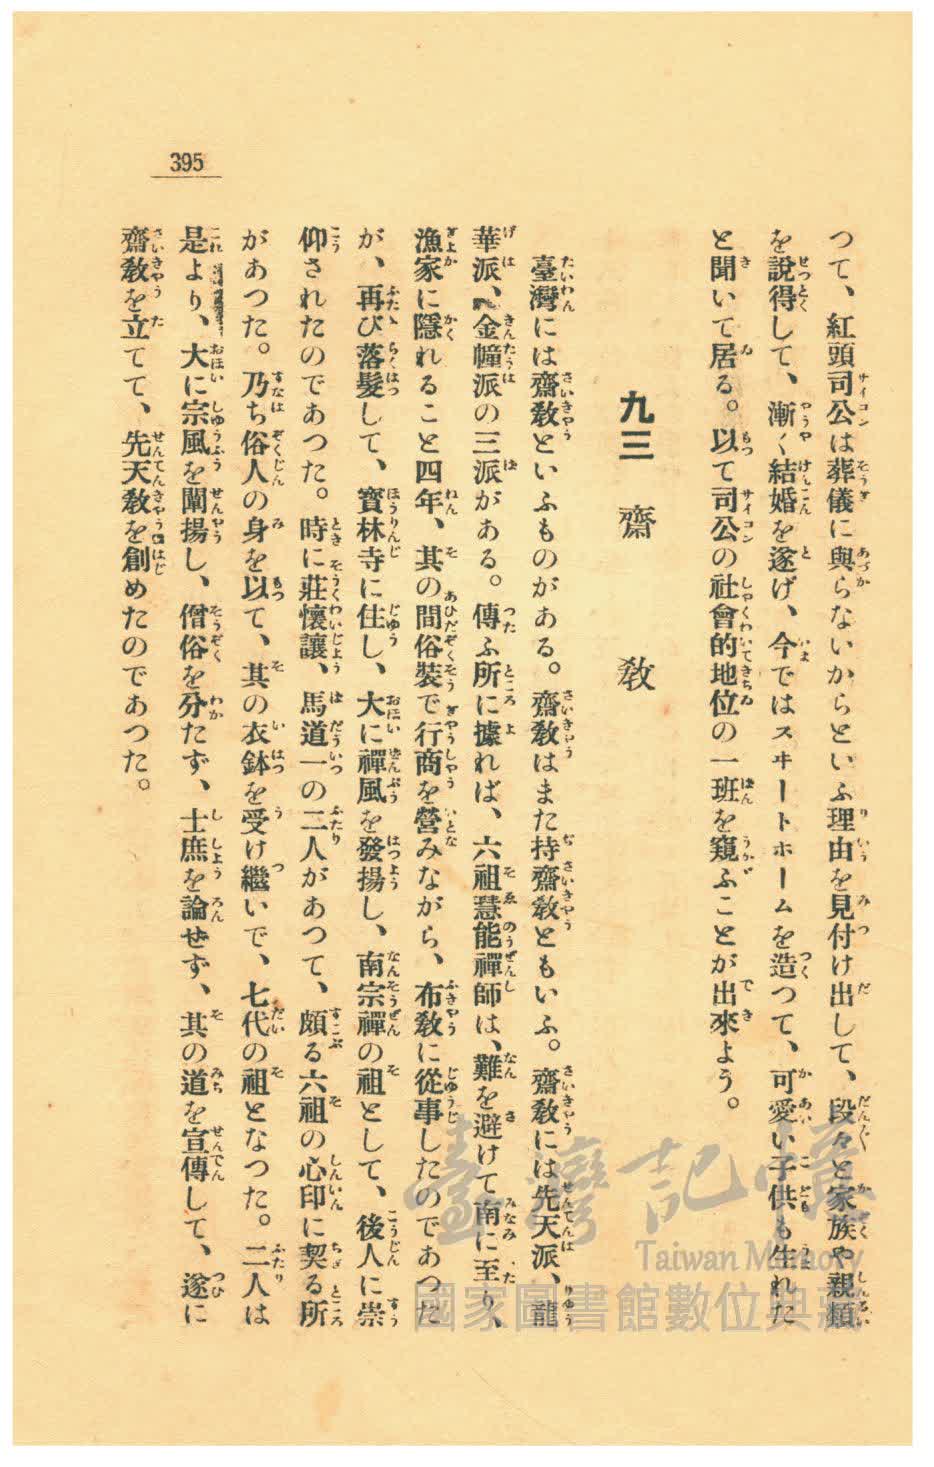 395
つて、紅頭司公は葬儀に與らないからといふ理由を見付け出して、段々と家族や親類
を說得して、漸く結婚を遂げ、今ではスヰートホームを造つて、可愛い子供も生れた
と聞いて居る。以て司公の社會的地位の一班を窺ふことが出來よう。
九三 齋敎
臺灣には齋敎といふものがある。齋敎はまた持齋敎ともいふ。齋敎には先天派、龍
華派、金幢派の三派がある。傳ふ所に據れば、六祖慧能禪師は、難を避けて南に至り、
漁家に隱れること四年、其の間俗裝で行商を營みながら、布敎に從事したのであつた
が、再び落髮して、寶林寺に住し、大に禪風を發揚し、南宗禪の祖として、後人に崇
仰されたのであつた。時に莊懷讓、馬道一の二人があつて、頗る六祖の心印に契る所
があつた。乃ち俗人の身を以て、其の衣鉢を受け繼いで、七代の祖となつた。二人は
是より、大に宗風を闡揚し、僧俗を分たず、士庶を論せず、其の道を宣傳して、遂に
齋敎を立てて、先天敎を創めたのであつた。
臺灣記憶
Taiwan Memory
國家圖書館數位典藏